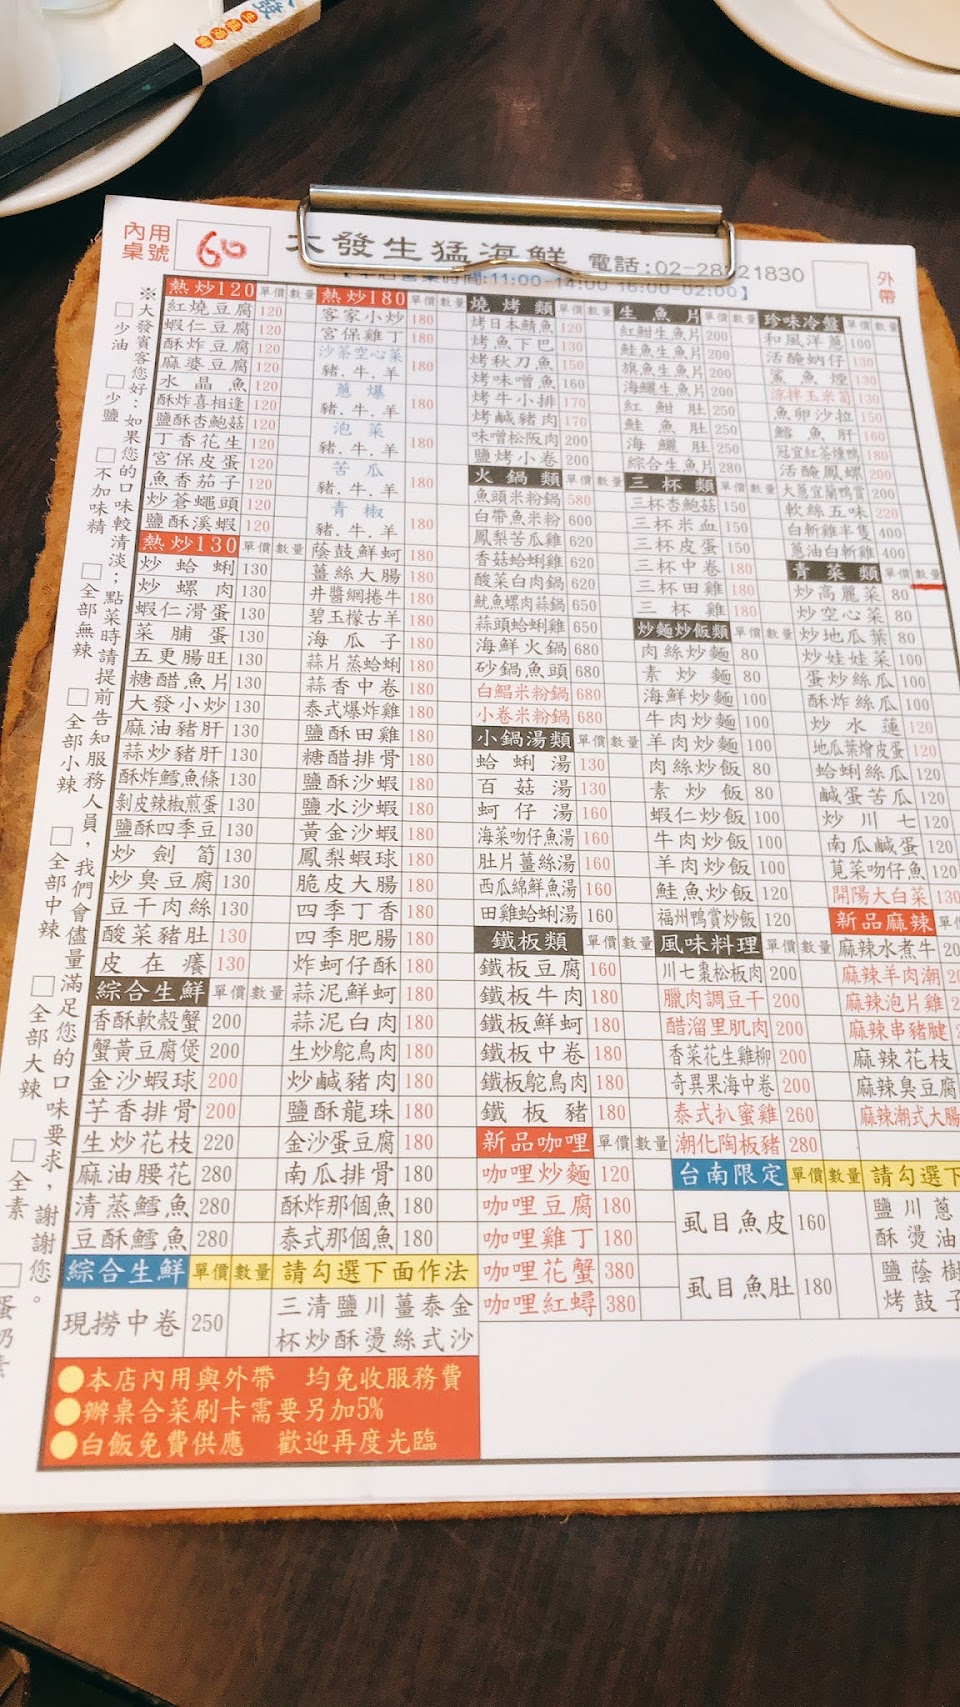 內用
桌號
60
大發生猛海鮮
電話:02-28221830
外帶
時間:11:00-14:00 16:00-02:00】
※大發賓客您好:如果您的口味較清淡;點菜時請提前告知服務人員,我們會儘量滿足您的口味要求,謝謝您。
□少油
□少鹽
□不加味精
□全部無辣
□全部小辣
□全部中辣
□全部大辣
□全素
□蛋奶素
熱炒120 單價 數量
紅燒豆腐 120
蝦仁豆腐 120
酥炸豆腐 120
麻婆豆腐 120
水晶魚 120
酥炸喜相逢 120
鹽酥杏鮑菇 120
丁香花生 120
宮保皮蛋 120
魚香茄子 120
炒蒼蠅頭 120
鹽酥溪蝦 120
熱炒130 單價 數量
炒蛤蜊 130
炒螺肉 130
蝦仁滑蛋 130
菜脯蛋 130
五更腸旺 130
糖醋魚片 130
大發小炒 130
麻油豬肝 130
蒜炒豬肝 130
酥炸鱈魚條 130
剝皮辣椒煎蛋 130
鹽酥四季豆 130
炒劍筍 130
炒臭豆腐 130
豆干肉絲 130
酸菜豬肚 130
皮在癢 130
綜合生鮮 單價 數量
香酥軟殼蟹 200
蟹黃豆腐煲 200
金沙蝦球 200
芋香排骨 200
生炒花枝 220
麻油腰花 280
清蒸鱈魚 280
豆酥鱈魚 280
綜合生鮮 單價 數量 請勾選下面作法
現撈中卷 250
三清鹽川薑泰金
杯炒酥燙絲式沙
熱炒180 單價 數量
客家小炒 180
宮保雞丁 180
沙茶空心菜
豬.牛.羊 180
蔥爆
豬.牛.羊 180
泡菜
豬.牛.羊 180
苦瓜
豬.牛.羊 180
青椒
豬.牛.羊 180
蔭鼓鮮蚵 180
薑絲大腸 180
丼醬網捲牛 180
碧玉檬古羊 180
海瓜子 180
蒜片蒸蛤蜊 180
蒜香中卷 180
泰式爆炸雞 180
鹽酥田雞 180
糖醋排骨 180
鹽酥沙蝦 180
鹽水沙蝦 180
黃金沙蝦 180
鳳梨蝦球 180
脆皮大腸 180
四季丁香 180
四季肥腸 180
炸蚵仔酥 180
蒜泥鮮蚵 180
蒜泥白肉 180
生炒鴕鳥肉 180
炒鹹豬肉 180
鹽酥龍珠 180
金沙蛋豆腐 180
南瓜排骨 180
酥炸那個魚 180
泰式那個魚 180
燒烤類 單價 數量
烤日本鯖魚 120
烤魚下巴 130
烤秋刀魚 150
烤味噌魚 160
烤牛小排 170
烤鹹豬肉 170
味噌松阪肉 200
鹽烤小卷 200
火鍋類 單價 數量
魚頭米粉鍋 580
白帶魚米粉 600
鳳梨苦瓜雞 620
香菇蛤蜊雞 620
酸菜白肉鍋 620
魷魚螺肉蒜鍋 650
蒜頭蛤蜊雞 650
海鮮火鍋 680
砂鍋魚頭 680
白鯧米粉鍋 680
小卷米粉鍋 680
小鍋湯類 單價 數量
蛤蜊湯 130
百菇湯 130
蚵仔湯 160
海菜吻仔魚湯 160
肚片薑絲湯 160
西瓜綿鮮魚湯 160
田雞蛤蜊湯 160
鐵板類 單價 數量
鐵板豆腐 160
鐵板牛肉 180
鐵板鮮蚵 180
鐵板中卷 180
鐵板鴕鳥肉 180
鐵板豬 180
新品咖哩 單價 數量
咖哩炒麵 120
咖哩豆腐 180
咖哩雞丁 180
咖哩花蟹 380
咖哩紅蟳 380
生魚片 單價 數量
紅魽生魚片 200
鮭魚生魚片 200
旗魚生魚片 200
海鱺生魚片 200
紅魽肚 250
鮭魚肚 250
海鱺肚 250
綜合生魚片 280
三杯類 單價 數量
三杯杏鮑菇 150
三杯米血 150
三杯皮蛋 150
三杯中卷 180
三杯田雞 180
三杯雞 180
炒麵炒飯類 單價 數量
肉絲炒麵 80
素炒麵 80
海鮮炒麵 100
牛肉炒麵 100
羊肉炒麵 100
肉絲炒飯 80
素炒飯 80
蝦仁炒飯 100
牛肉炒飯 100
羊肉炒飯 100
鮭魚炒飯 120
福州鴨賞炒飯 120
風味料理 單價 數量
川七棗松板肉 200
臘肉調豆干 200
醋溜里肌肉 200
香菜花生雞柳 200
奇異果海中卷 200
泰式扒蜜雞 260
潮化陶板豬 280
台南限定 單價 數量 請勾選下
虱目魚皮 160
鹽川蔥
酥燙油
虱目魚肚 180
鹽蔭樹
烤鼓子
珍味冷盤 單價 數量
和風洋蔥 100
活醃蚋仔 130
鯊魚煙 130
涼拌玉米筍 130
魚卵沙拉 150
鱈魚肝 160
冠宜紅茶燻鴨 180
活醃鳳螺 200
大蔥宜蘭鴨賞 200
軟絲五味 220
白斬雞半隻 400
蔥油白斬雞 400
青菜類 單價 數量
炒高麗菜 80
炒空心菜 80
炒地瓜葉 80
炒娃娃菜 100
蛋炒絲瓜 100
酥炸絲瓜 100
炒水蓮 120
地瓜葉燴皮蛋 120
蛤蜊絲瓜 120
鹹蛋苦瓜 120
炒川七 120
南瓜鹹蛋 120
莧菜吻仔魚 120
開陽大白菜 130
新品麻辣 單
麻辣水煮牛 20
麻辣羊肉潮 20
麻辣泡片雞 2
麻辣串豬腱
麻辣花枝
麻辣臭豆腐
麻辣潮式大腸
●本店內用與外帶 均免收服務費
●辦桌合菜刷卡需要另加5%
●白飯免費供應 歡迎再度光臨